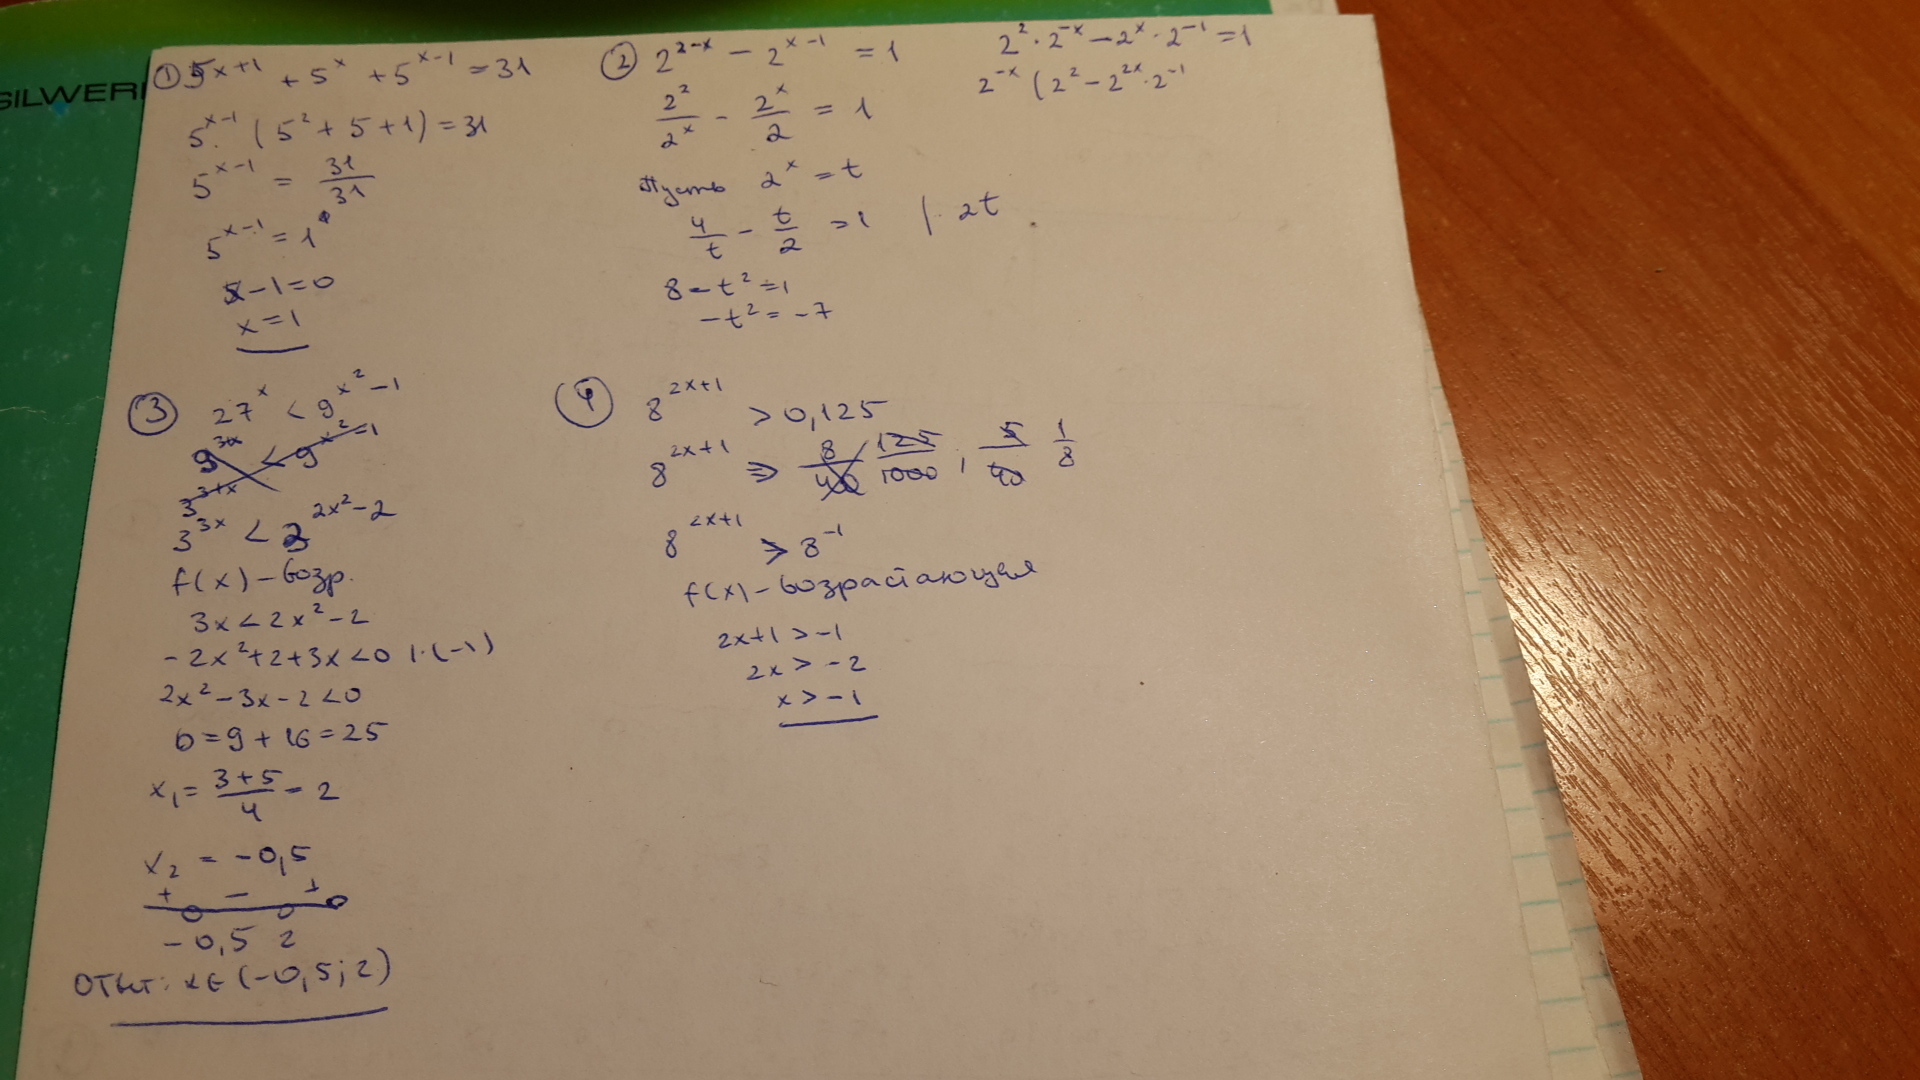 SILWER
① 5^(x+1) + 5^x + 5^(x-1) = 31
5^(x-1) (5² + 5 + 1) = 31
5^(x-1) = 31/31
5^(x-1) = 1
x - 1 = 0
x = 1
② 2^(2-x) - 2^(x-1) = 1
2²/2^x - 2^x/2 = 1
Пусть 2^x = t
4/t - t/2 = 1 | · 2t
8 - t² = 1
-t² = -7
2² · 2^(-x) - 2^x · 2^(-1) = 1
2^(-x) (2² - 2^(2x) · 2^(-1)
③ 27^x < 9^(x²-1)
9^(3x) < 9^(x²-1)
3^(3+x)
3^(3x) < 3^(2x²-2)
f(x) - возр.
3x < 2x² - 2
-2x² + 2 + 3x < 0 | · (-1)
2x² - 3x - 2 < 0
D = 9 + 16 = 25
x₁ = (3+5)/4 = 2
x₂ = -0,5
+ - +
-0,5 2
Ответ: x ∈ (-0,5; 2)
④ 8^(2x+1) > 0,125
8^(2x+1) > 8/400 125/1000 ; 5/40 1/8
8^(2x+1) > 8^(-1)
f(x) - возрастающая
2x+1 > -1
2x > -2
x > -1